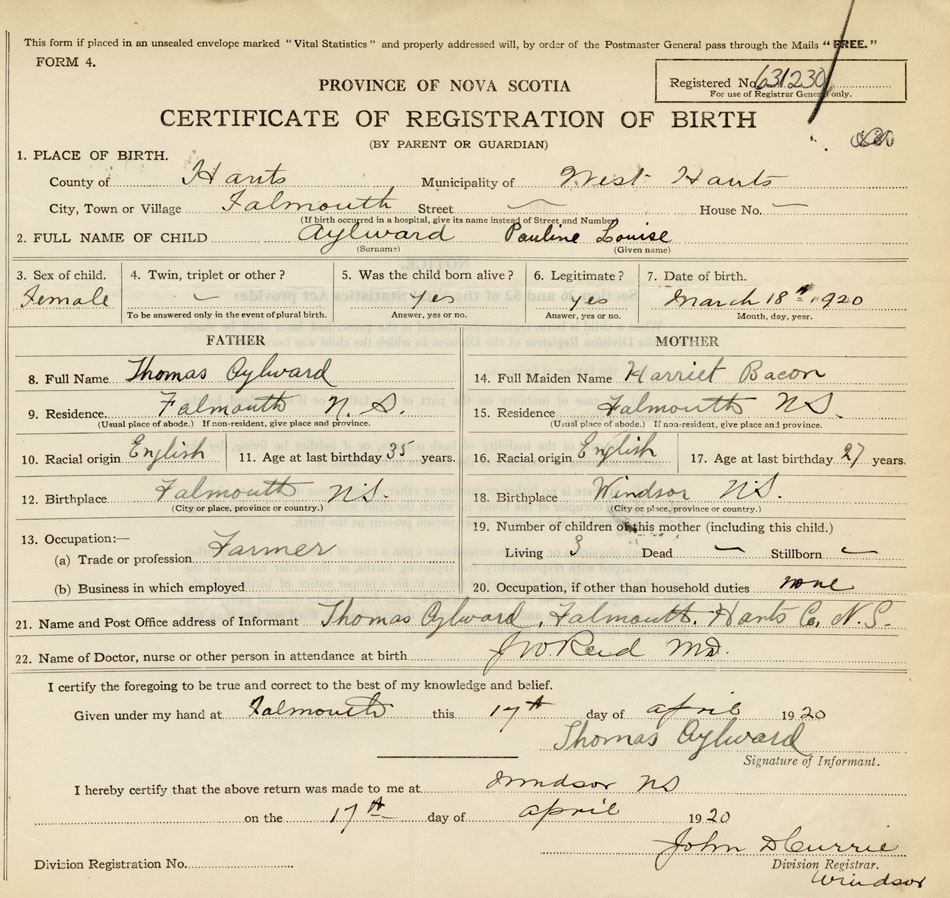 This form if placed in an unsealed envelope marked "Vital Statistics" and properly addressed will, by order of the Postmaster General pass through the Mails "FREE."
FORM 4.
Registered No. 631230
For use of Registrar General only.
PROVINCE OF NOVA SCOTIA
CERTIFICATE OF REGISTRATION OF BIRTH
(BY PARENT OR GUARDIAN)
1. PLACE OF BIRTH.
County of Hants Municipality of West Hants
City, Town or Village Falmouth Street — House No. —
(If birth occurred in a hospital, give its name instead of Street and Number)
2. FULL NAME OF CHILD Aylward Pauline Louise
(Surname) (Given name)
3. Sex of child. 4. Twin, triplet or other? 5. Was the child born alive? 6. Legitimate? 7. Date of birth.
Female — yes yes March 18th, 1920
To be answered only in the event of plural birth. Answer, yes or no. Answer, yes or no. Month, day, year.
FATHER MOTHER
8. Full Name Thomas Aylward 14. Full Maiden Name Harriet Bacon
9. Residence. Falmouth N. S. 15. Residence Falmouth NS.
(Usual place of abode.) If non-resident, give place and province. (Usual place of abode.) If non-resident, give place and province.
10. Racial origin English 11. Age at last birthday 35 years. 16. Racial origin English 17. Age at last birthday 27 years.
12. Birthplace Falmouth NS. 18. Birthplace Windsor NS.
(City or place, province or country.) (City or place, province or country.)
13. Occupation:— 19. Number of children of this mother (including this child.)
(a) Trade or profession Farmer Living 3 Dead — Stillborn —
(b) Business in which employed 20. Occupation, if other than household duties none
21. Name and Post Office address of Informant Thomas Aylward, Falmouth, Hants Co. N.S.
22. Name of Doctor, nurse or other person in attendance at birth J W Reid MD.
I certify the foregoing to be true and correct to the best of my knowledge and belief.
Given under my hand at Falmouth this 17th day of april 1920
Thomas Aylward
Signature of Informant.
I hereby certify that the above return was made to me at Windsor NS
on the 17th day of april 1920
John D Currie
Division Registration No. Division Registrar.
Windsor